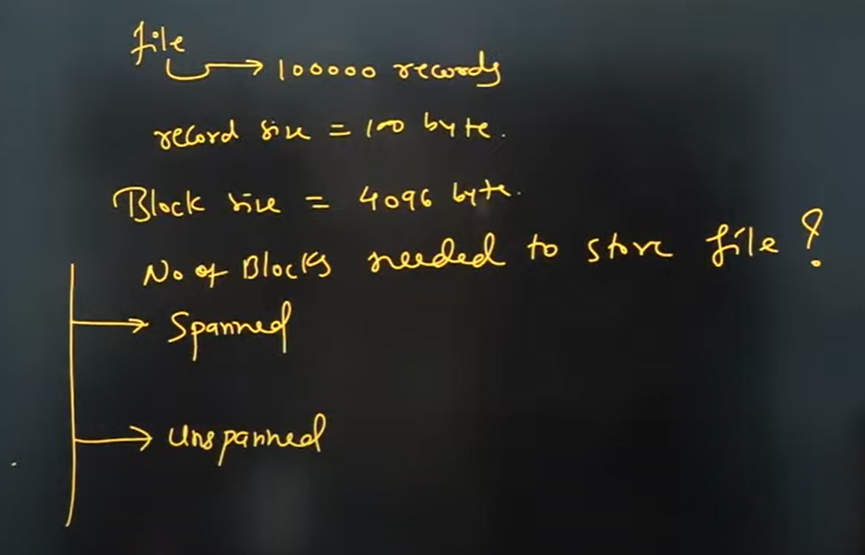 file
→ 100000 records
record size = 100 byte.
Block size = 4096 byte.
No of Blocks needed to store file?
→ Spanned
→ Unspanned